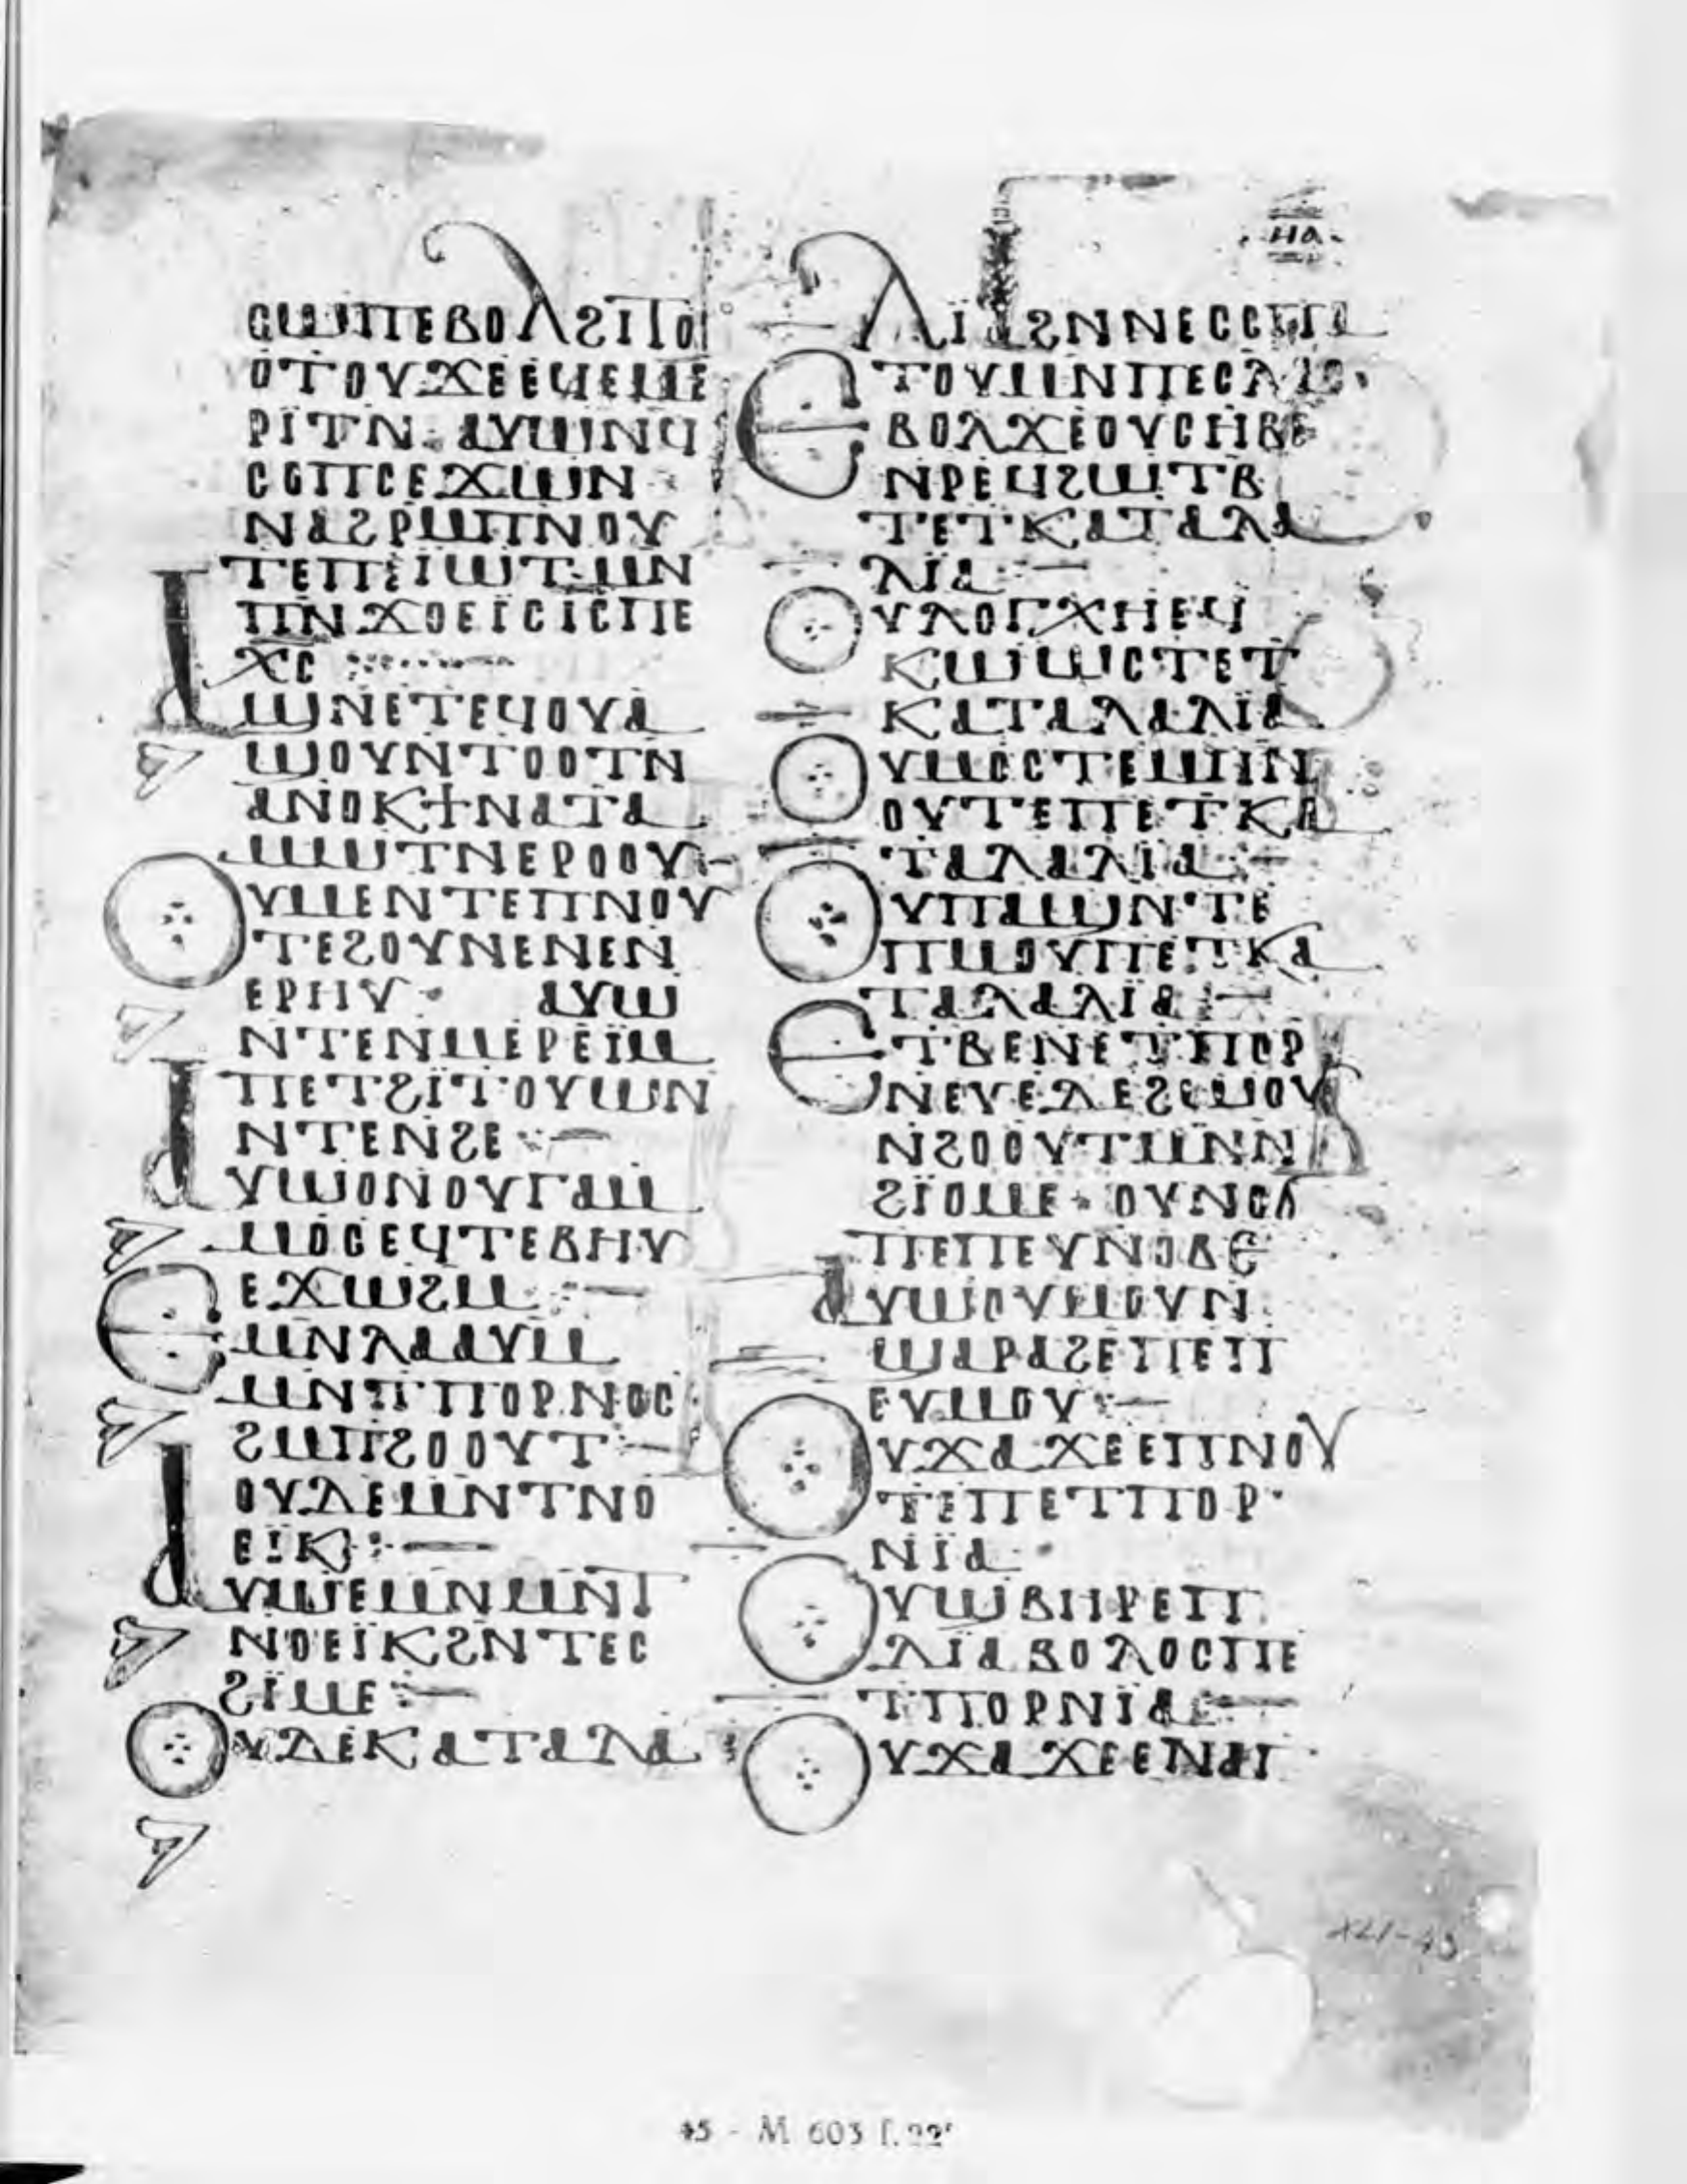 ⲛⲁ
ⲥⲱⲧⲡⲉⲃⲟⲗϩⲓⲧⲟ
ⲟⲧⲟⲩϫⲉⲉϥⲉⲙⲉ
ⲣⲓⲧⲛ· ⲁⲩⲱⲛϥ
ⲥⲟⲡⲥⲉϫⲱⲛ
ⲛⲁϩⲣⲙⲡⲛⲟⲩ
ⲧⲉⲡⲉⲓⲱⲧ·ⲙⲛ
ⲡⲛϫⲟⲉⲓⲥⲓⲥⲡⲉ
ⲭⲥ
ⲁϣⲛⲉⲧⲉϥⲟⲩⲁ
ϣⲟⲩⲛⲧⲟⲟⲧⲛ
ⲁⲛⲟⲕϯⲛⲁⲧⲁ
ⲙⲱⲧⲛⲉⲣⲟⲟⲩ:—
ⲟⲩⲙⲉⲛⲧⲉⲡⲛⲟⲩ
ⲧⲉϩⲟⲩⲛⲉⲛⲉⲛ
ⲉⲣⲏⲩ· ⲁⲩⲱ
ⲛⲧⲉⲛⲙⲉⲣⲉⲓⲙ
ⲡⲉⲧϩⲓⲧⲟⲩⲱⲛ
ⲛⲧⲉⲛϩⲉ:—
ⲁⲩⲱⲟⲛⲟⲩⲅⲁⲙ
ⲙⲟⲥⲉϥⲧⲃⲃⲏⲩ
ⲉϫⲱϩⲙ:—
ⲉⲙⲛⲗⲁⲁⲩⲙ
ⲙⲛⲧⲡⲟⲣⲛⲟⲥ
ϩⲙⲡϩⲟⲟⲩⲧ:—
ⲟⲩⲇⲉⲙⲛⲧⲛⲟ
ⲉⲓⲕ:—
ⲁⲩⲱⲉⲙⲛⲙⲛⲧ
ⲛⲟⲉⲓⲕϩⲛⲧⲉⲥ
ϩⲓⲙⲉ:—
ⲟⲩⲇⲉⲕⲁⲧⲁⲗⲁ
ⲗⲓⲁϩⲛⲛⲉⲥⲥⲡⲟ
ⲧⲟⲩⲙⲛⲡⲉⲥⲗⲁⲥ·
ⲉⲃⲟⲗϫⲉⲟⲩⲥⲏϥⲉ
ⲛⲣⲉϥϩⲱⲧⲃ
ⲧⲉⲧⲕⲁⲧⲁⲗⲁ
ⲗⲓⲁ:—
ⲟⲩⲗⲟⲅⲭⲏⲉϥ
ⲕⲱⲱⲥⲧⲉⲧ
ⲕⲁⲧⲁⲗⲁⲗⲓⲁ
ⲟⲩⲙⲟⲥⲧⲉⲙⲡⲛ
ⲟⲩⲧⲉⲡⲉⲧⲕⲁ
ⲧⲁⲗⲁⲗⲓⲁ:—
ⲟⲩⲡⲁϣⲛⲧⲉ
ⲡⲙⲟⲩⲡⲉⲧⲕⲁ
ⲧⲁⲗⲁⲗⲓⲁ:—
ⲉⲧⲃⲉⲛⲉⲧⲡⲟⲣ
ⲛⲉⲩⲉⲇⲉϩⲉⲙⲟⲩ
ⲛϩⲟⲟⲩⲧⲙⲛⲛ
ϩⲓⲟⲙⲉ· ⲟⲩⲛⲟϭ
ⲡⲉⲡⲉⲩⲛⲟⲃⲉ
ⲁⲩⲱⲟⲩⲙⲟⲩⲛ
ϣⲁⲣⲁϩⲉⲡⲉⲡ
ⲉⲩⲙⲟⲩ:—
ⲟⲩϫⲁϫⲉⲉⲡⲛⲟⲩ
ⲧⲉⲡⲉⲧⲡⲟⲣ
ⲛⲓⲁ·
ⲟⲩϣⲃⲏⲣⲉⲡ
ⲇⲓⲁⲃⲟⲗⲟⲥⲡⲉ
ⲧⲡⲟⲣⲛⲓⲁ:—
ⲟⲩϫⲁϫⲉⲉⲛⲁⲅ
XLI-43
45 - M 603 f. 22ʳ